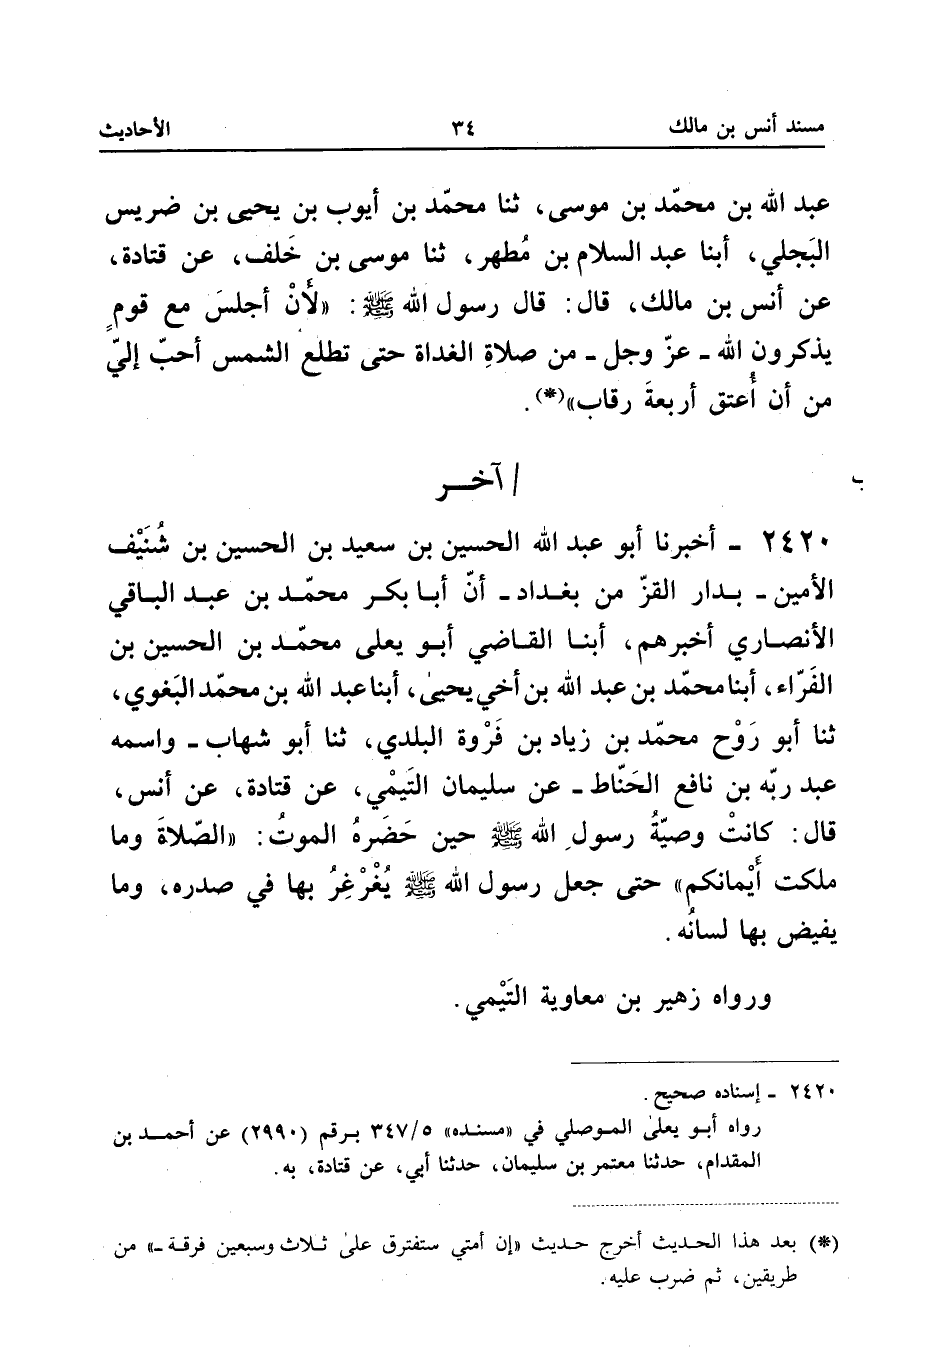 مسند أنس بن مالك ٣٤ الأحاديث
عبد الله بن محمّد بن موسى، ثنا محمّد بن أيوب بن يحيى بن ضريس
البَجلي، أبنا عبد السلام بن مُطهر، ثنا موسى بن خَلف، عن قتادة،
عن أنس بن مالك، قال: قال رسول الله ﷺ: «لأَنْ أجلسَ مع قومٍ
يذكرون الله ـ عزّ وجل ـ من صلاةِ الغداة حتى تطلع الشمس أحبّ إليّ
من أن أُعتق أربعةَ رقاب»(*).
/ آخـــر ب
٢٤٢٠ ـ أخبرنا أبو عبد الله الحسين بن سعيد بن الحسين بن شُنَيْف
الأمين ـ بـدار القزّ من بغـداد ـ أنّ أبـا بكـر محمّـد بن عبـد البـاقي
الأنصـاري أخبرهم، أبنـا القـاضي أبـو يعلى محمّـد بن الحسين بن
الفَرّاء، أبنا محمّد بن عبد الله بن أخي يحيىٰ، أبنا عبد الله بن محمد البَغوي،
ثنا أبو رَوْح محمّد بن زياد بن فَرْوة البلدي، ثنا أبو شهاب ـ واسمه
عبد ربّه بن نافع الحَنّاط ـ عن سليمان التَيمْي، عن قتادة، عن أنس،
قال: كانتْ وصيّةُ رسولِ الله ﷺ حين حَضَرهُ الموتُ: «الصّلاةَ وما
ملكت أَيْمانكم» حتى جعل رسول الله ﷺ يُغْرْغِرُ بها في صدره، وما
يفيض بها لسانُه.
ورواه زهير بن معاوية التَيْمي.
٢٤٢٠ ـ إسناده صحيح.
رواه أبـو يعلىٰ المـوصلي في «مسنـده» ٣٤٧/٥ بـرقم (٢٩٩٠) عن أحمـد بن
المقدام، حدثنا معتمر بن سليمان، حدثنا أبي، عن قتادة، به.
(*) بعد هذا الحـديث أخرج حـديث «إن أمتي ستفترق علىٰ ثـلاث وسبعين فرقـة ـ» من
طريقين، ثم ضرب عليه.